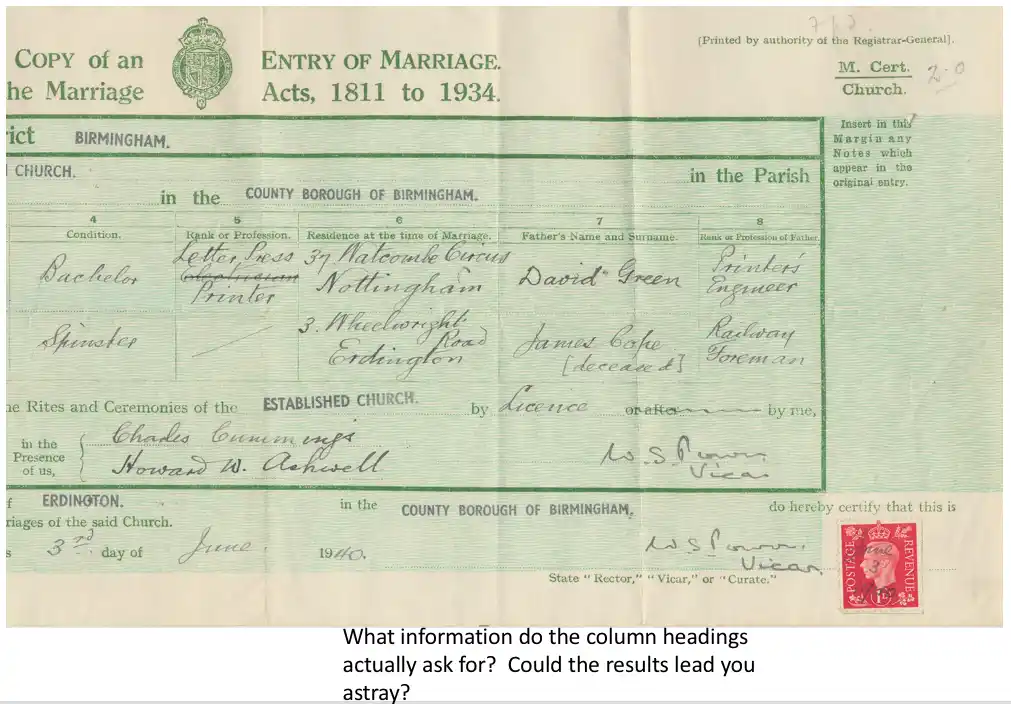 COPY of an ENTRY OF MARRIAGE.
he Marriage Acts, 1811 to 1934.
[Printed by authority of the Registrar-General].
M. Cert.
Church.
2-0
Insert in this
Margin any
Notes which
appear in the
original entry.
ict BIRMINGHAM.
CHURCH.
in the Parish
in the COUNTY BOROUGH OF BIRMINGHAM.
4 5 6 7 8
Condition. Rank or Profession. Residence at the time of Marriage. Father's Name and Surname. Rank or Profession of Father.
Bachelor Letter Press Printer 37 Watcombe Circus Nottingham David Green Printer's Engineer
Spinster 3. Wheelwright Road Erdington James Cope [deceased] Railway Foreman
he Rites and Ceremonies of the ESTABLISHED CHURCH. by Licence or after by me,
in the
Presence
of us,
Charles Cummings
Howard W. Ashwell
W. S.
Vicar
f ERDINGTON. in the COUNTY BOROUGH OF BIRMINGHAM, do hereby certify that this is
riages of the said Church.
s 3rd day of June. 1940.
W S
Vicar.
State "Rector," "Vicar," or "Curate."
POSTAGE REVENUE
1D
What information do the column headings
actually ask for? Could the results lead you
astray?